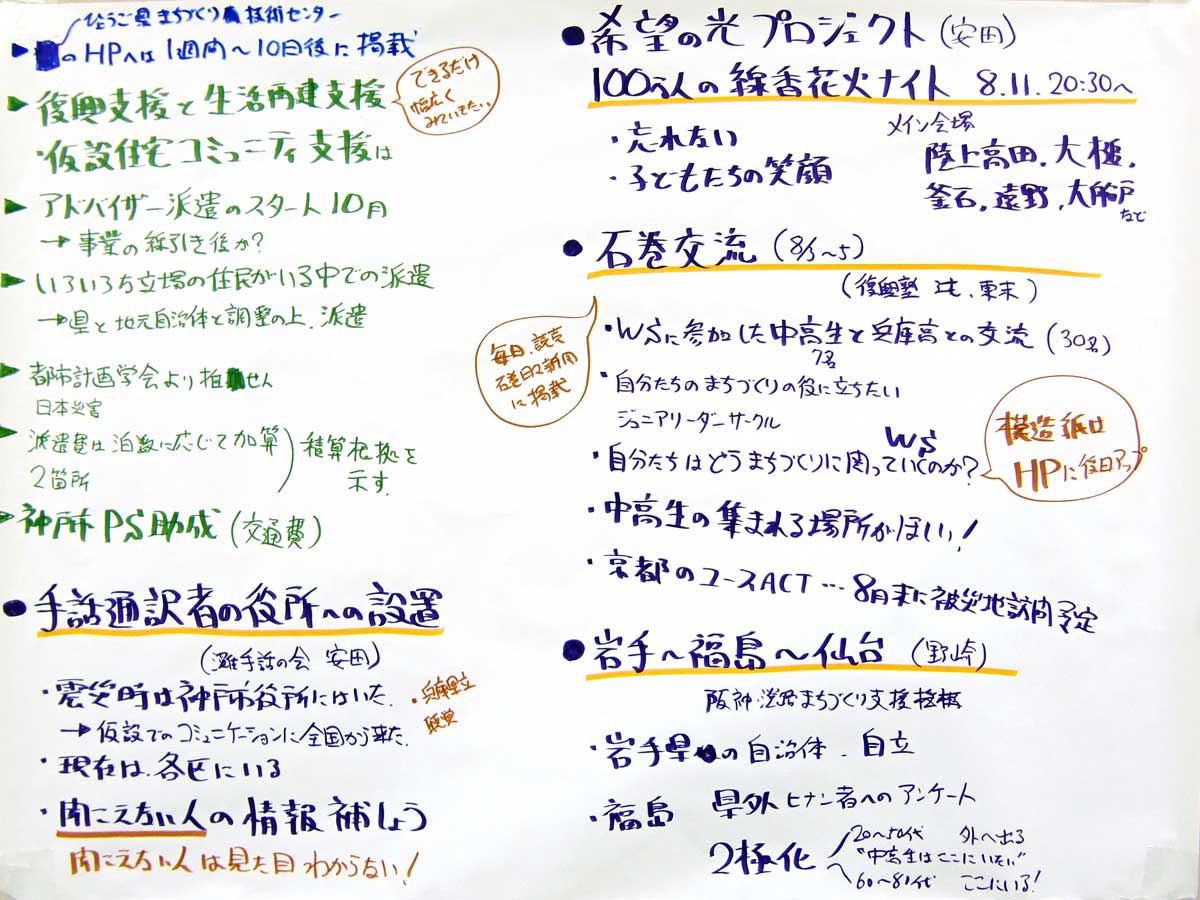 ひょうご県まちづくり技術センター
のHPへは1週間〜10日後に掲載
復興支援と生活再建支援
できるだけ
幅広く
みていきたい
・仮設住宅コミュニティ支援は
アドバイザー派遣のスタート10月
→事業の線引き後か?
いろいろな立場の住民がいる中での派遣
→県と地元自治体と調整の上、派遣
都市計画学会より
せん
日本災害
派遣費は泊数に応じて加算
2箇所
積算根拠を
示す.
神戸PS助成(交通費)
●手話通訳者の役所への設置
(灘手話の会 安田)
・震災時は神戸市役所にはいた.
・兵庫県立
聴覚
→仮設でのコミュニケーションに全国から来た.
・現在は、各区にいる
・聞こえない人の情報補しょう
聞こえない人は見た目わからない!
●希望の光プロジェクト(安田)
100万人の線香花火ナイト 8.11. 20:30〜
・忘れない
・子どもたちの笑顔
メイン会場
陸上高田、大槌、
釜石、遠野、大船戸
など
●石巻交流(8/3〜5)
(復興塾 辻、東末)
毎日、読売
石巻日々新聞
に掲載
・WSに参加した中高生と兵庫高との交流(30名)
7名
・自分たちのまちづくりの役に立ちたい
ジュニアリーダーサークル
WS
・自分たちはどうまちづくりに関っていくのか?
模造紙は
HPに後日アップ
・中高生の集まれる場所がほしい!
・京都のユースACT…8月末に被災地訪問予定
●岩手〜福島〜仙台(野崎)
阪神・淡路まちづくり支援機構
・岩手県の自治体、自立
・福島 県外ヒナン者へのアンケート
2極化
20〜50代 外へ出る
"中高生はここにいたい"
60〜80代 ここにいる!